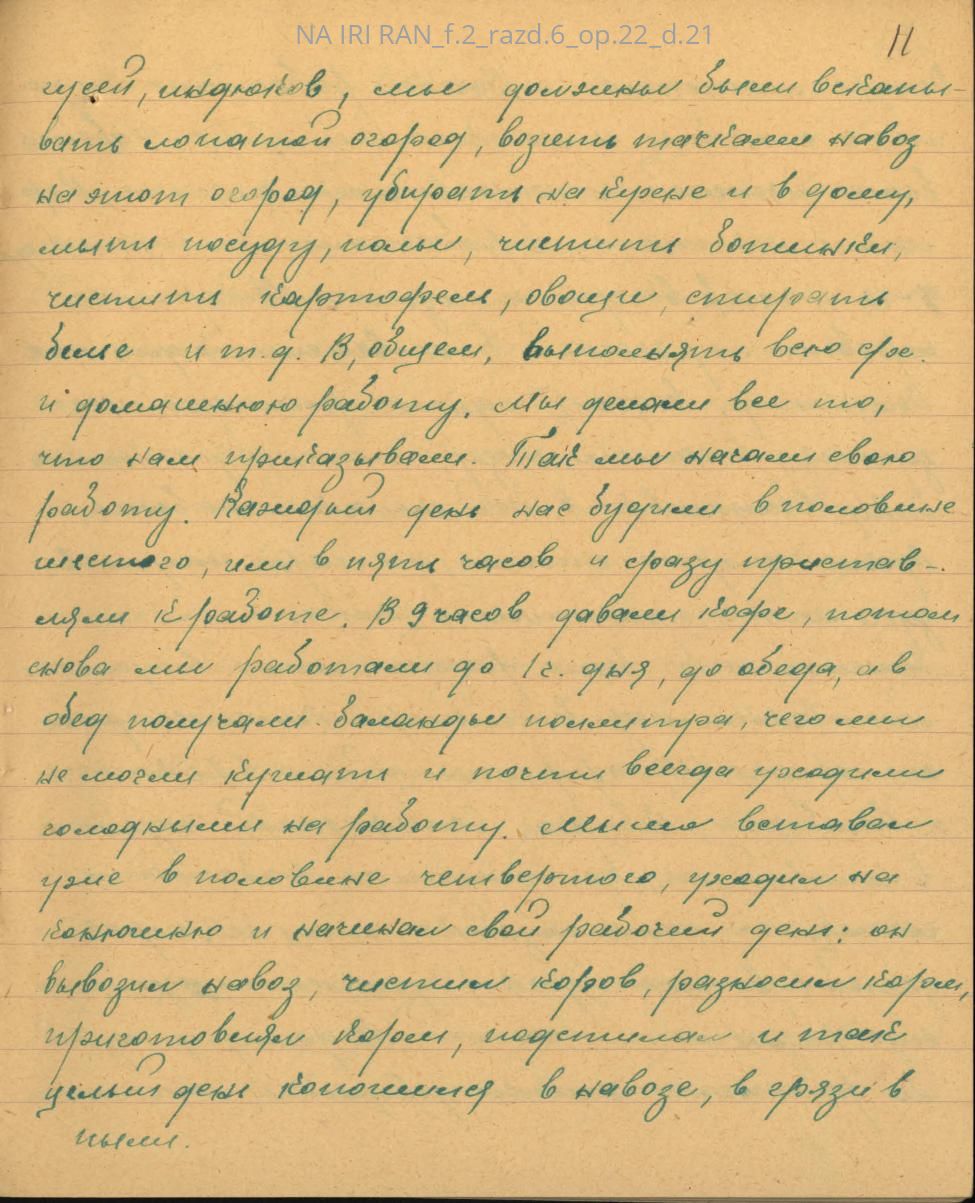 NA IRI RAN_f.2_razd.6_op.22_d.21
11
гусей, индюков, мы должны были вскапы-
вать лопатой огород, возить тачками навоз
на этот огород, убирать на кухне и в дому,
мыть посуду, полы, чистить ботинки,
чистить картофель, овощи, стирать
белье и т.д. В общем, выполнять всю с/х.
и домашнюю работу. Мы делали все то,
что нам приказывали. Так мы начали свою
работу. Каждый день нас будили в половине
шестого, или в пять часов и сразу пристав-
ляли к работе. В 9 часов давали кофе, потом
снова мы работали до 1 ч. дня, до обеда, а в
обед получали баланды поллитра, чего мы
не могли кушать и почти всегда уходили
голодными на работу. Мы вставал
уже в половине четвертого, уходил на
конюшню и начинал свой рабочий день: он
вывозил навоз, чистил коров, разносил корм,
приготовлял корм, подстилал и так
целый день копошился в навозе, в грязи в
пыли.